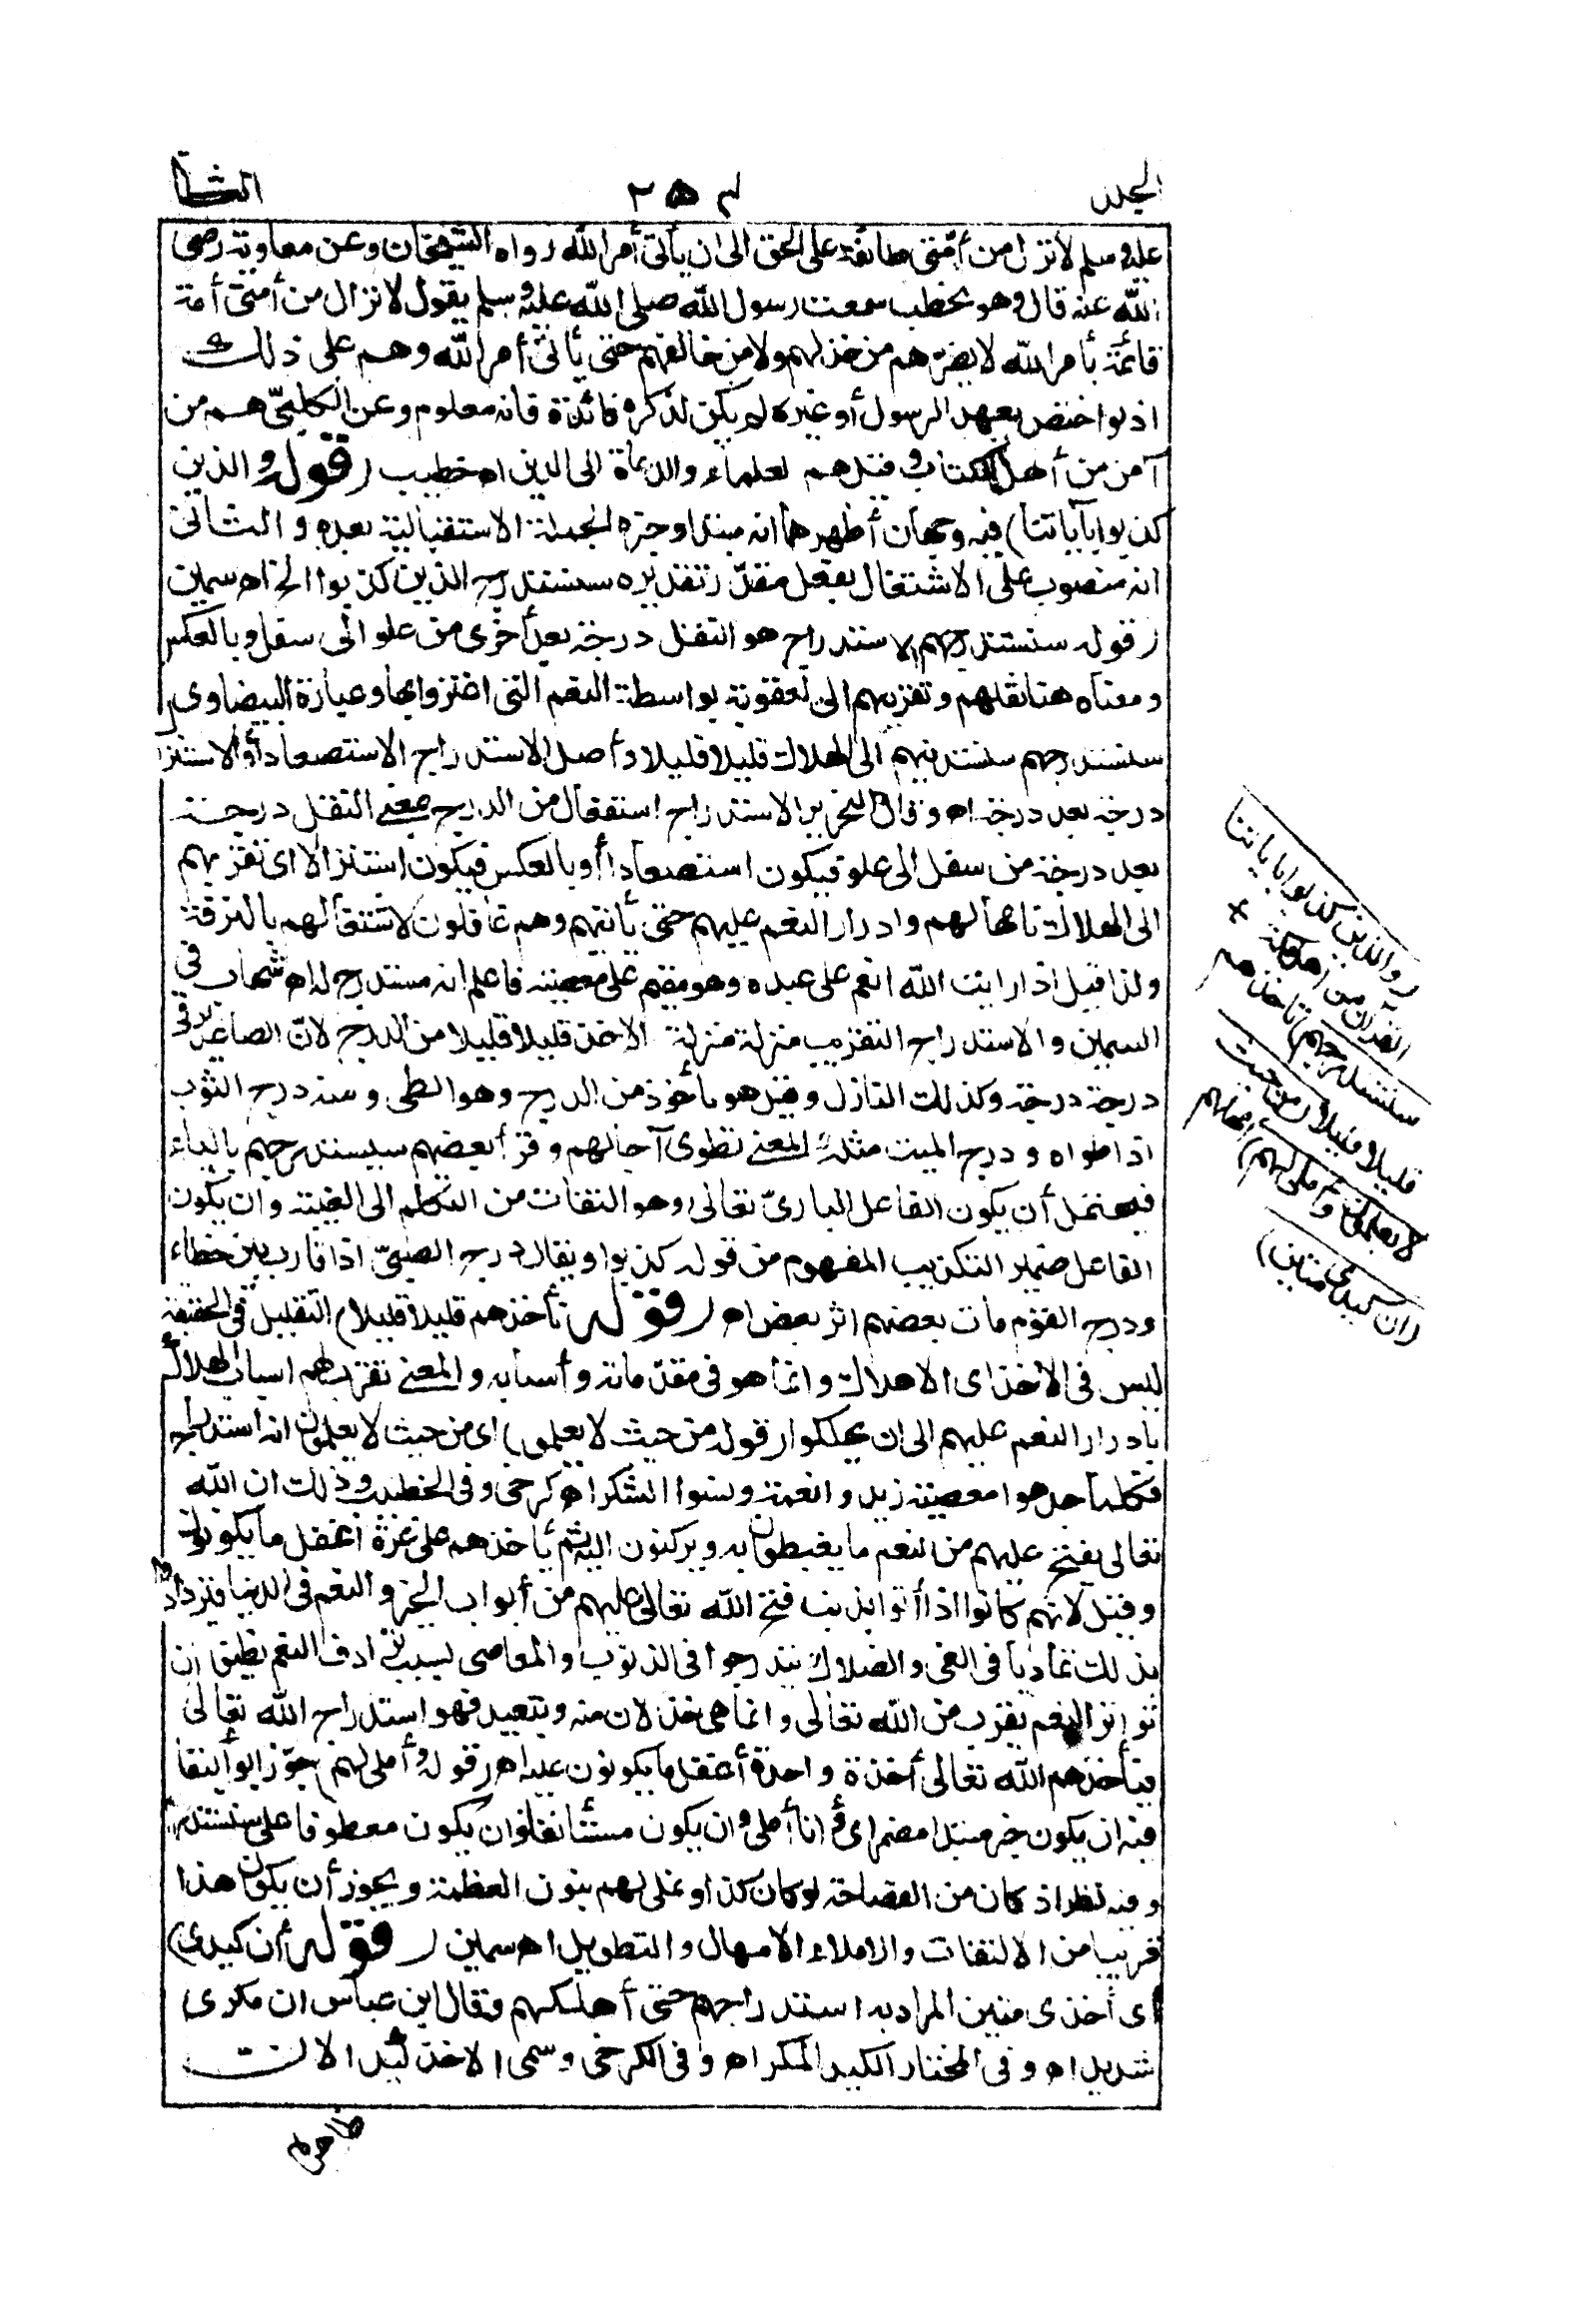 الجلد
٢٥٤
الثانى
عليه وسلم لا تزال من أمتى طائفة على الحق الى ان يأتى أمر الله رواه الشيخان وعن معاوية رضى
الله عنه قال وهو يخطب سمعت رسول الله صلى الله عليه وسلم يقول لا تزال من أمتى أمة
قائمة بأمر الله لا يضرّهم من خذلهم ولا من خالفهم حتى يأتى أمر الله وهم على ذلك
اذ لو اختص بعهد الرسول أو غيره لم يكن لذكره فائدة فانه معلوم وعن الكلبىّ هم من
آمن من أهل الكتاب وقيل هم لعلماء والدعاة الى الدين اه خطيب (قوله والذين
كذبوا بآياتنا) فيه وجهان أظهرهما انه مبتدا وخبره الجملة الاستقبالية بعده والثانى
انه منصوب على الاشتغال بفعل مقدّر تقديره سنستدرج الذين كذبوا الخ اه سمين
(قوله سنستدرجهم) الاستدراج هو النقل درجة بعد أخرى من علو الى سفل وبالعكس
ومعناه هنا نقلهم وتقريبهم الى لعقوبة بواسطة النعم التى اغتروا بها وعبارة البيضاوى
سنستدرجهم سنستدنيهم الى الهلاك قليلا قليلا وأصل الاستدراج الاستصعاد أو الاستنزا
درجة بعد درجة اه وقال النحرير الاستدراج استفعال من الدرج بمعنى النقل درجة
بعد درجة من سفل الى علو فيكون استصعادا أو بالعكس فيكون استنزالا اى نقربهم
الى الهلاك بامهالهم وادرار النعم عليهم حتى يأتيهم وهم غافلون لاشتغالهم بالترفة
ولذا قيل اذا رايت الله انعم على عبده وهو مقيم على معصيته فاعلم انه مستدرج له اه شهاب وفى
السمين والاستدراج التقريب منزلة منزلة الاخذ قليلا قليلا من الدرج لانّ الصاعد يرقى
درجة درجة وكذلك النازل وقيل هو مأخوذ من الدرج وهو الطى ومنه درج الثوب
اذا طواه ودرج الميت مثله والمعنى نطوى آجالهم وقرأ بعضهم سيستدرجهم بالياء
فيحتمل أن يكون الفاعل البارىّ تعالى وهو التفات من التكلم الى الغيبة وان يكون
الفاعل ضمير التكذيب المفهوم من قوله كذبوا ويقال درج الصبىّ اذا قارب بين خطاء
ودرج القوم مات بعضهم اثر بعض اه (قوله نأخذهم قليلا قليلا) التقليل فى الحقيقة
ليس فى الاخذ اى الاهلاك وانما هو فى مقدّماته وأسبابه والمعنى نقرب لهم اسباب الهلاك
بادرار النعم عليهم الى ان يهلكوا (قوله من حيث لا يعلمون) اى من حيث لا يعلمون انه استدراج
فكلما جددوا معصية زيدوا نعمة ونسوا الشكر اه كرخى وفى الخطيب وذلك ان الله
تعالى يفتح عليهم من النعم ما يغبطون به ويركنون اليه ثم يأخذهم على غرة أغفل ما يكونون
وقيل لانهم كانوا اذا أتوا بذنب فتح الله تعالى عليهم من أبواب الخير والنعم فى الدنيا فيزدادون
بذلك تماديا فى الغى والضلال يتدرجوا فى الذنوب والمعاصى بسبب ترادف النعم بظنّ ان
تواتر النعم يقرب من الله تعالى وانما هى خذلان منه وتبعيد فهو استدراج الله تعالى
فيأخذهم الله تعالى أخذة واحدة أغفل ما يكونون عليه اه (قوله وأملى لهم) جوّز ابو البقا
فيه ان يكون خبر مبتدا مضمر اى وأنا أملى وان يكون مستأنفا وان يكون معطوفا على سنستدرج
وفيه نظر اذ كان من الفصاحة لو كان كذا ونملى لهم بنون العظمة ويجوز أن يكون هذا
قريبا من الالتفات والاملاء الامهال والتطويل اه سمين (قوله أن كيدى)
أى أخذى متين المراد به استدراجهم حتى أهلكهم وقال ابن عباس ان مكرى
شديد اه وفى المختار الكيد المكر اه وفى الكرخى وسمى الاخذ كيدا لانّ
ظاهره
(والذين كذبوا بآياتنا
القرآن من أهل مكة
سنستدرجهم) نأخذهم
قليلا قليلا (من حيث
لا يعلمون وأملى لهم) امهلهم
(ان كيدى متين)